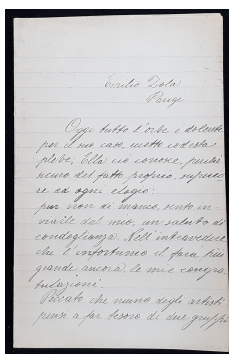 Emilio Zola
Parigi
Oggi tutto l'orbe è dolente
per il suo caso, codesta
plebe; Ella ciò conosce,
del fatto proprio,
re ad ogni elogio:
pur non di manco, sento in
dal mio, un saluto di
condoglianza. Nell'intravedere
che l'infortunio il farà più
grande ancora, le mie congra
tulazioni.
Peccato che niuno degli artisti
pensi a far tesoro di due gruppi